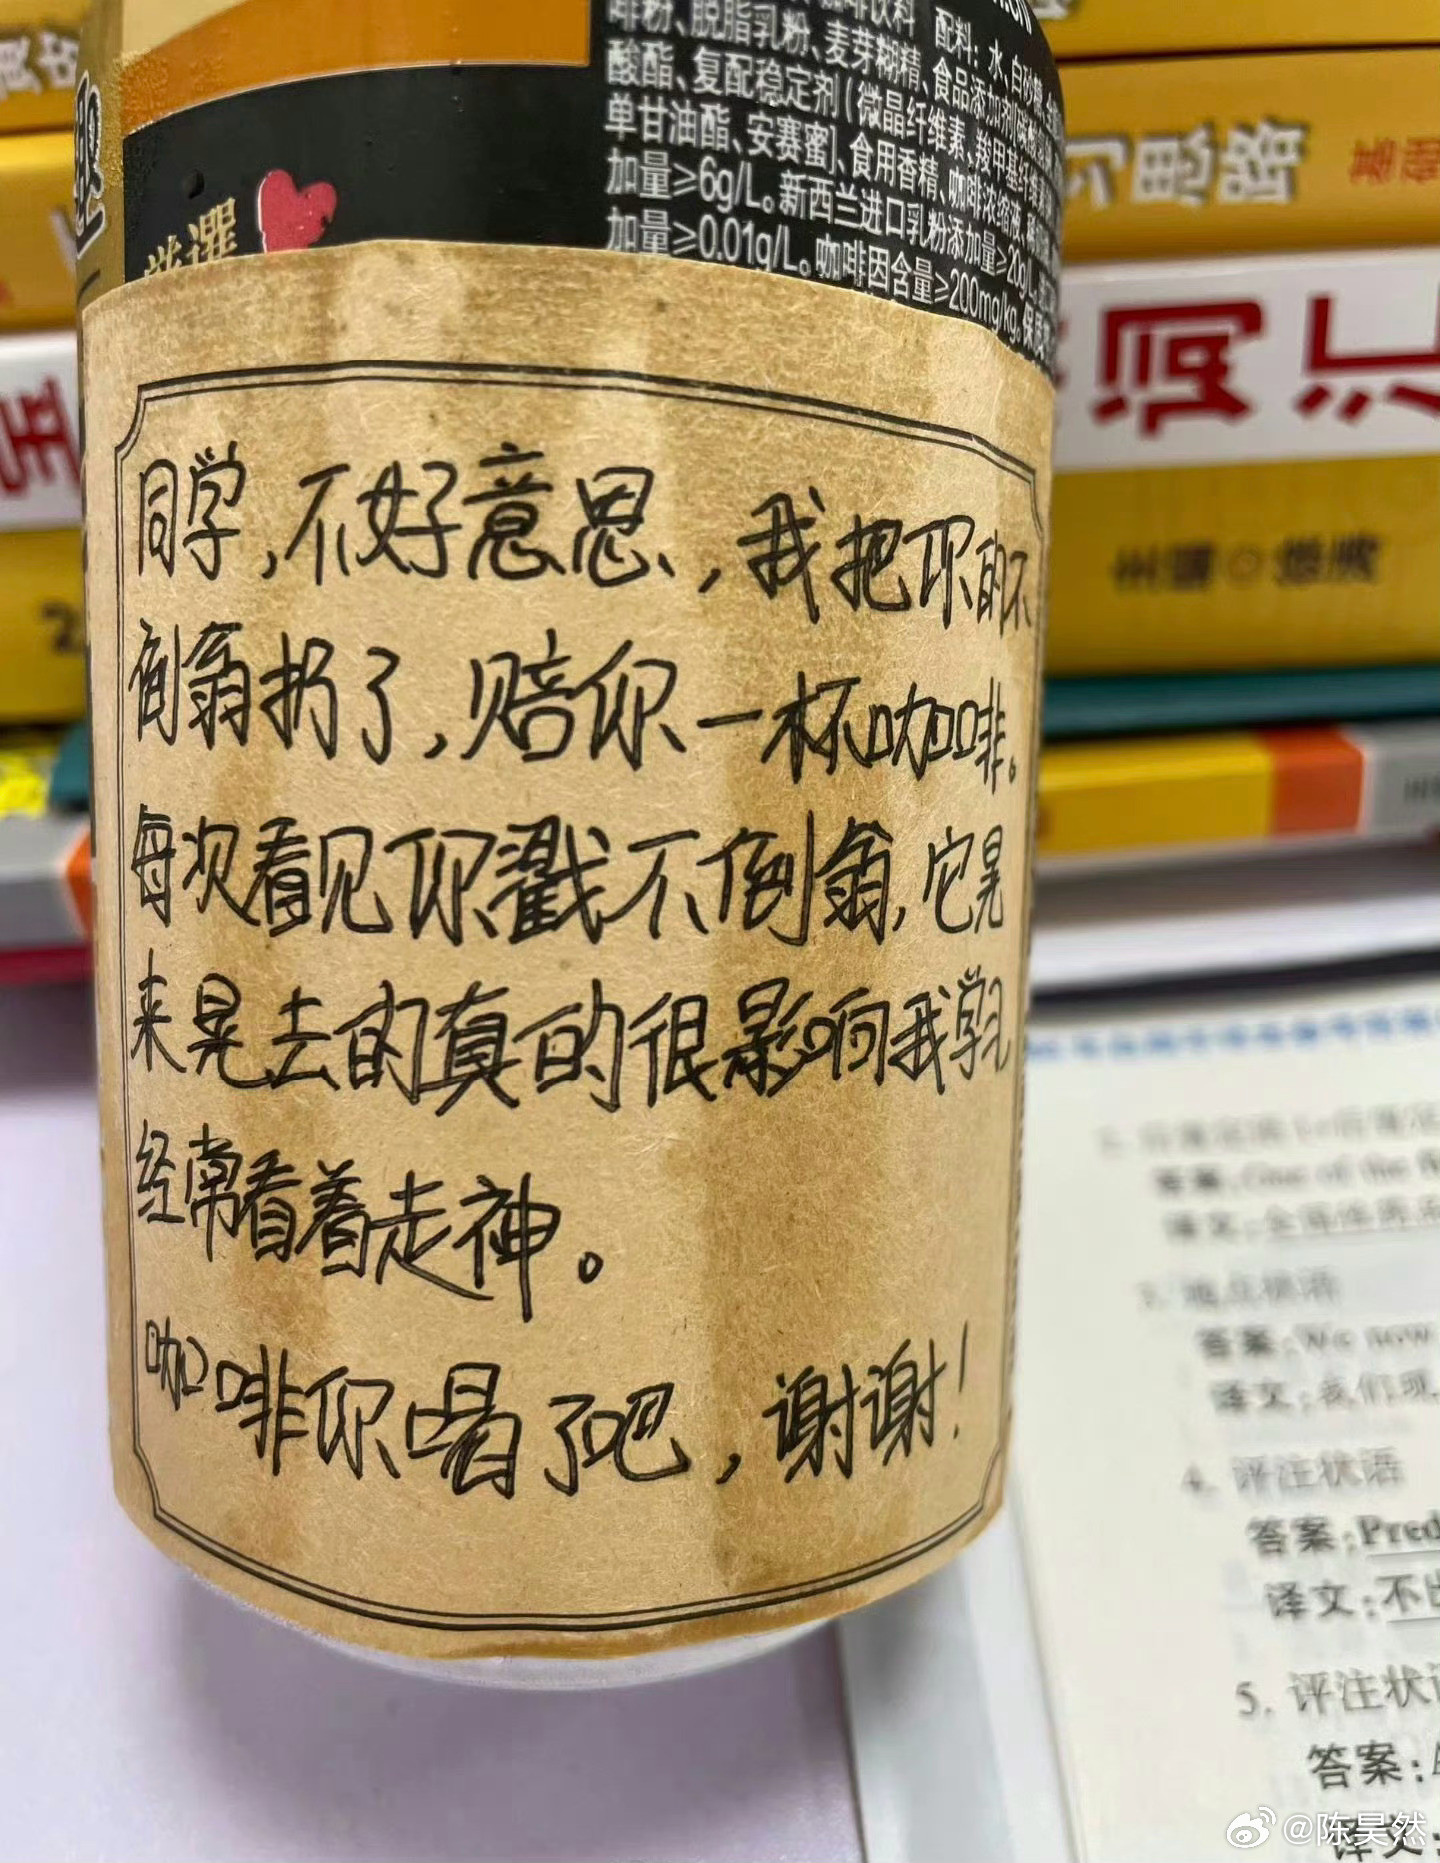 咖啡饮料 配料：水、白砂糖、
啡粉、脱脂乳粉、麦芽糊精、食品添加剂
酸酯、复配稳定剂（微晶纤维素、羧甲基纤维素
单甘油酯、安赛蜜）、食用香精、咖啡浓缩液、
加量≥6g/L。新西兰进口乳粉添加量≥20g/L,
加量≥0.01g/L。咖啡因含量≥200mg/kg。保质
严選
习思路
基础
词汇
同学,不好意思,我把你的不
倒翁扔了,赔你一杯咖啡。
每次看见你戳不倒翁,它晃
来晃去的真的很影响我学习
经常看着走神。
咖啡你喝了吧,谢谢!
答案:One of the
译文:
3. 地点状语
答案:We now
译文:我们现
4. 评注状语
答案:Pred
译文:不出
5. 评注状语
答案:A
译文:
@陈昊然